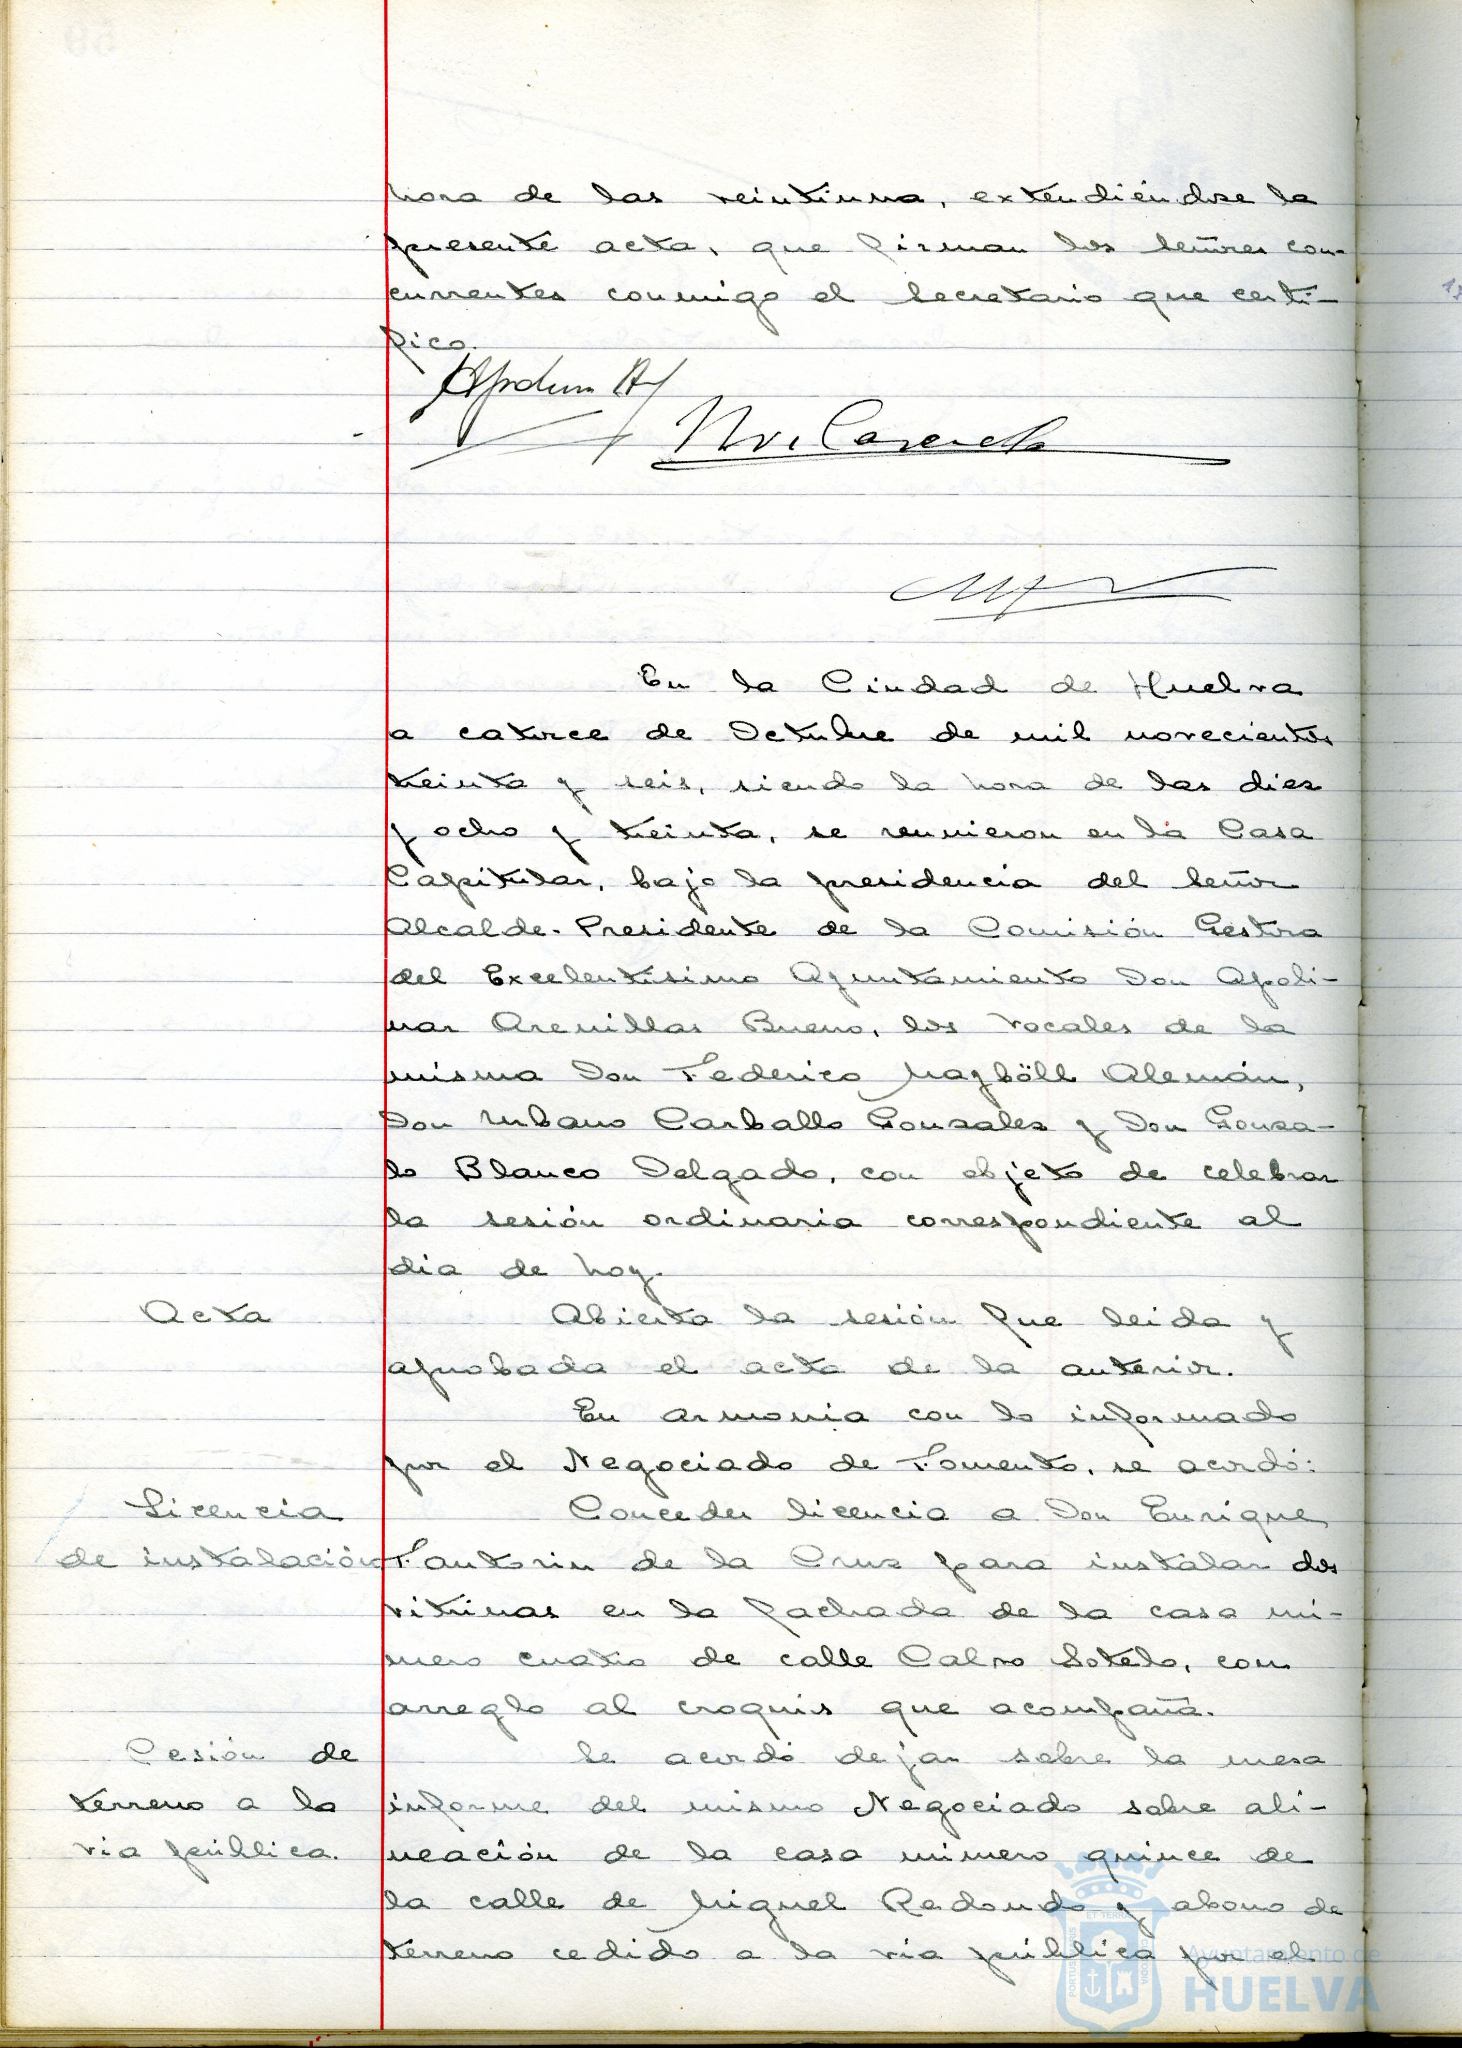 hora de las veintiuna, extendiéndose la
presente acta, que firman los señores con-
currentes conmigo el Secretario que certi-
fico.
En la Ciudad de Huelva
a catorce de Octubre de mil novecientos
treinta y seis, siendo la hora de las diez
y ocho y treinta, se reunieron en la Casa
Capitular, bajo la presidencia del Señor
Alcalde-Presidente de la Comisión Gestora
del Excelentísimo Ayuntamiento Don Apoli-
nar Arenillas Bueno, los vocales de la
misma Don Federico Mayböll Alemán,
Don Urbano Carballo Gonzales y Don Gonza-
lo Blanco Delgado, con objeto de celebrar
la sesión ordinaria correspondiente al
dia de hoy.
Acta
Abierta la sesión fue leida y
aprobada el acta de la anterior.
En armonia con lo informado
por el Negociado de Fomento, se acordó:
Licencia
de instalación
Conceder licencia a Don Enrique
de la Cruz para instalar dos
vitrinas en la fachada de la casa nú-
mero cuatro de calle Calvo Sotelo, con
arreglo al croquis que acompaña.
Cesión de
terreno a la
via pública.
Se acordó dejar sobre la mesa
informe del mismo Negociado sobre ali-
neación de la casa número quince de
la calle de Miguel Redondo y abono de
terreno cedido a la via pública por el
Ayuntamiento de
HUELVA